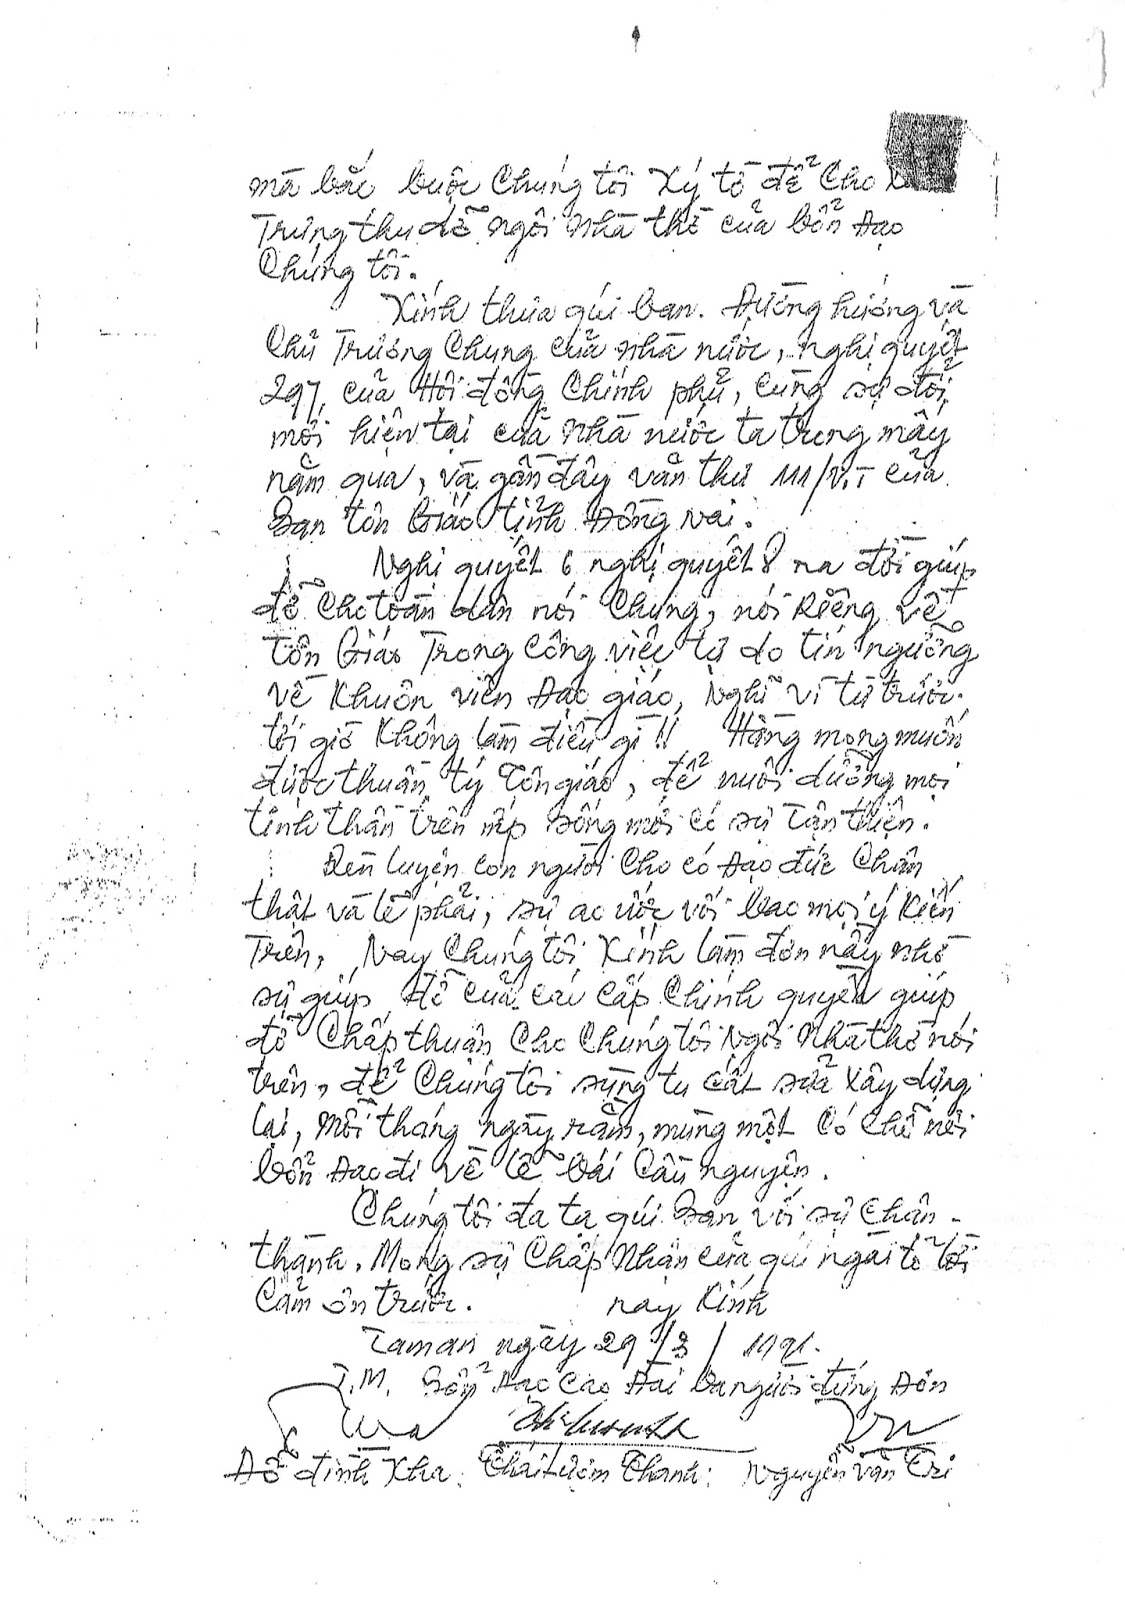 mà bắc buộc Chúng tôi Ký tờ để Cho
Trưng thu dở ngôi Nhà thờ của bổn Đạo
Chúng tôi.
Kính thưa quí ban. Đường hướng và
Chủ Trương Chung của nhà nước, nghị quyết
297, của Hội đồng Chính phủ, Cùng sự đổi
mới hiện tại của Nhà nước ta trung mấy
năm qua, và gần đây văn thư 111/V.T của
Ban tôn Giáo tỉnh Đồng Nai.
Nghị quyết 6 nghị quyết 8 ra đời giúp
đỡ Cho toàn dân nói Chung, nói Riêng về
tôn Giáo Trong Công việc tự do tín ngưỡng
về Khuôn viên Đạo giáo, Nghĩ vì từ trước
tới giờ Không làm điều gì !! Hằng mong muốn
được thuần túy Tôn giáo, để nuôi dưỡng mọi
tinh thần trên nếp sống mới có sự Tận thiện.
Rèn luyện con người Cho có Đạo đức Chân
thật và lẽ phải, sự ao ước với bao mọi ý Kiến
Trên, Nay Chúng tôi Kính làm đơn nầy nhờ
sự giúp đỡ của các Cấp Chính quyền giúp
đỡ Chấp thuận Cho Chúng tôi Ngôi Nhà thờ nói
trên, để Chúng tôi sùng tu cất sửa Xây dựng
lại, Mỗi tháng ngày rằm, mùng một Có Chỗ nơi
bổn Đạo đi về lễ bái Cầu nguyện.
Chúng tôi đa tạ quí Ban với sự Chân
thành. Mong sự Chấp Nhận của quí ngài tỏ lời
Cảm ơn trước. nay Kính
Taman ngày 29/3/1991.
T.M. Bổn Đạo Cao Đài ba người đứng Đơn
Đỗ đình Kha. Thái Lượm Thanh: Nguyễn văn Tri